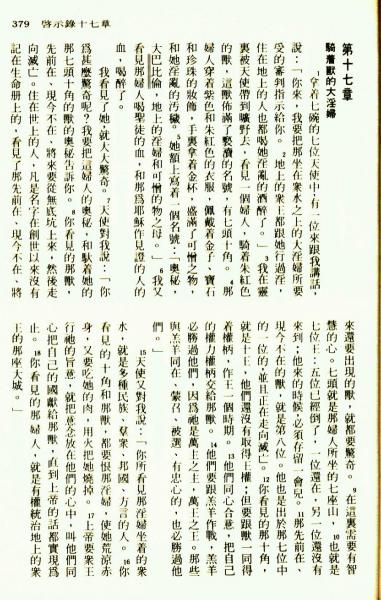 379 啓示錄十七章
第十七章
騎着獸的大淫婦
1拿着七碗的七位天使中,有一位來跟我講話,
說:「你來,我要把那坐在衆水之上的大淫婦所要
受的審判指示給你。2地上的衆王都跟她行過淫,
住在地上的人也都喝她淫亂的酒醉了。」3我在靈
裏被天使帶到曠野去,看見一個婦人,騎着朱紅色
的獸,這獸佈滿了褻瀆的名號,有七頭十角。4那
婦人穿着紫色和朱紅色的衣服,佩戴着金子、寶石
和珍珠的妝飾,手裏拿着金杯,盛滿了可憎之物,
和她淫亂的汚穢。5她額上寫着一個名號:「奧秘,
大巴比倫,地上的淫婦和可憎的物之母。」6我又
看見那婦人喝聖徒的血,和那爲耶穌作見證的人的
血,喝醉了。
我看見了她,就大大驚奇。7天使對我說:「你
爲甚麼驚奇呢?我要把這婦人的奧秘,和馱着她的
那七頭十角的獸的奧秘告訴你。8你看見的那獸,
先前在、現今不在、將來要從無底坑上來,然後走
向滅亡。住在世上的人,凡是名字在創世以來沒有
記在生命册上的,看見了那先前在、現今不在、將
來還要出現的獸,就都要驚奇。9在這裏需要有智
慧的心。七頭就是那婦人所坐的七座山,10也就是
七位王:五位已經倒了,一位還在,另一位還沒有
來到;他來的時候,必須存留一會兒。11那先前在、
現今不在的獸,就是第八位。他也是出於那七位中
的一位的,並且正在走向滅亡。12你看見的那十角,
就是十王,他們還沒有取得王權;但要跟獸一同得
着權柄,作王一個時期。13他們同心合意,把自己
的權力權柄交給那獸。14他們要跟羔羊作戰,羔羊
必勝過他們,因爲祂是萬主之主、萬王之王。那些
與羔羊同在、蒙召、被選、有忠心的,也必勝過他
們。」
15天使又對我說:「你所看見那淫婦坐着的衆
水,就是多種民族、羣衆、邦國、方言的人。16你
看見的十角和那獸,都要恨那淫婦,使她荒涼赤
身,又要吃她的肉,用火把她燒掉。17上帝要衆王
行祂的旨意,就把意念放在他們的心中,叫他們同
心把自己的國獻給那獸,直到上帝的話都實現爲
止。18你看見的那婦人,就是有權統治地上的衆
王的那座大城。」